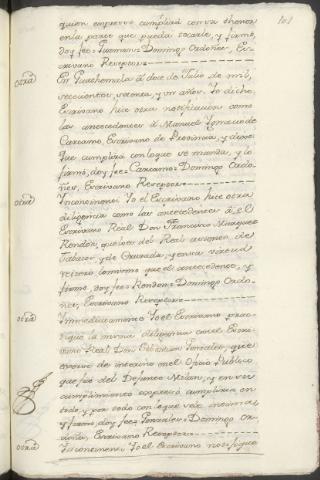 101
quien expresó cumplirá con su thenor
en la parte que pueda tocarle, y firmó,
doy fee: Guzman: Domingo Ordoñes, Es-
cravano Receptor
otra
En Guathemala á doce de Julio de mil,
setecientos setenta, y un años. Yo dicho
Escrivano hice otra notificacion como
las antecedentes á Manuel Ignacio de
Carcamo Escrivano de Provincia, y dixo:
que cumplirá con lo que se manda, y lo
firmó, doy fee: Carcamo: Domingo Ordo-
ñes, Escrivano Receptor
otra
Incontinenti Yo el Escrivano hice otra
diligencia como las antecedentes á el
Escrivano Real Don Francisco
Rondon, del Real de
Tabacos, y de y en su virtud
como el antecedente, y
firmó, doy fee: Rondon: Domingo Ordo-
ñes, Escrivano Receptor
otra
Immediatamente Yo el Escrivano prac-
tiqué la misma diligencia con el Escri-
vano Real Don Sebastian Gonzales, que
de interino en el Oficio Publico
que fue del Defunto y en su
cumplimiento expresó cumplirá en
todo, y por todo con lo que se le
y firmó, doy fee: Gonzales: Domingo Or-
doñes, Escrivano Receptor
otra
Incontinenti Yo el Escrivano notifiqué